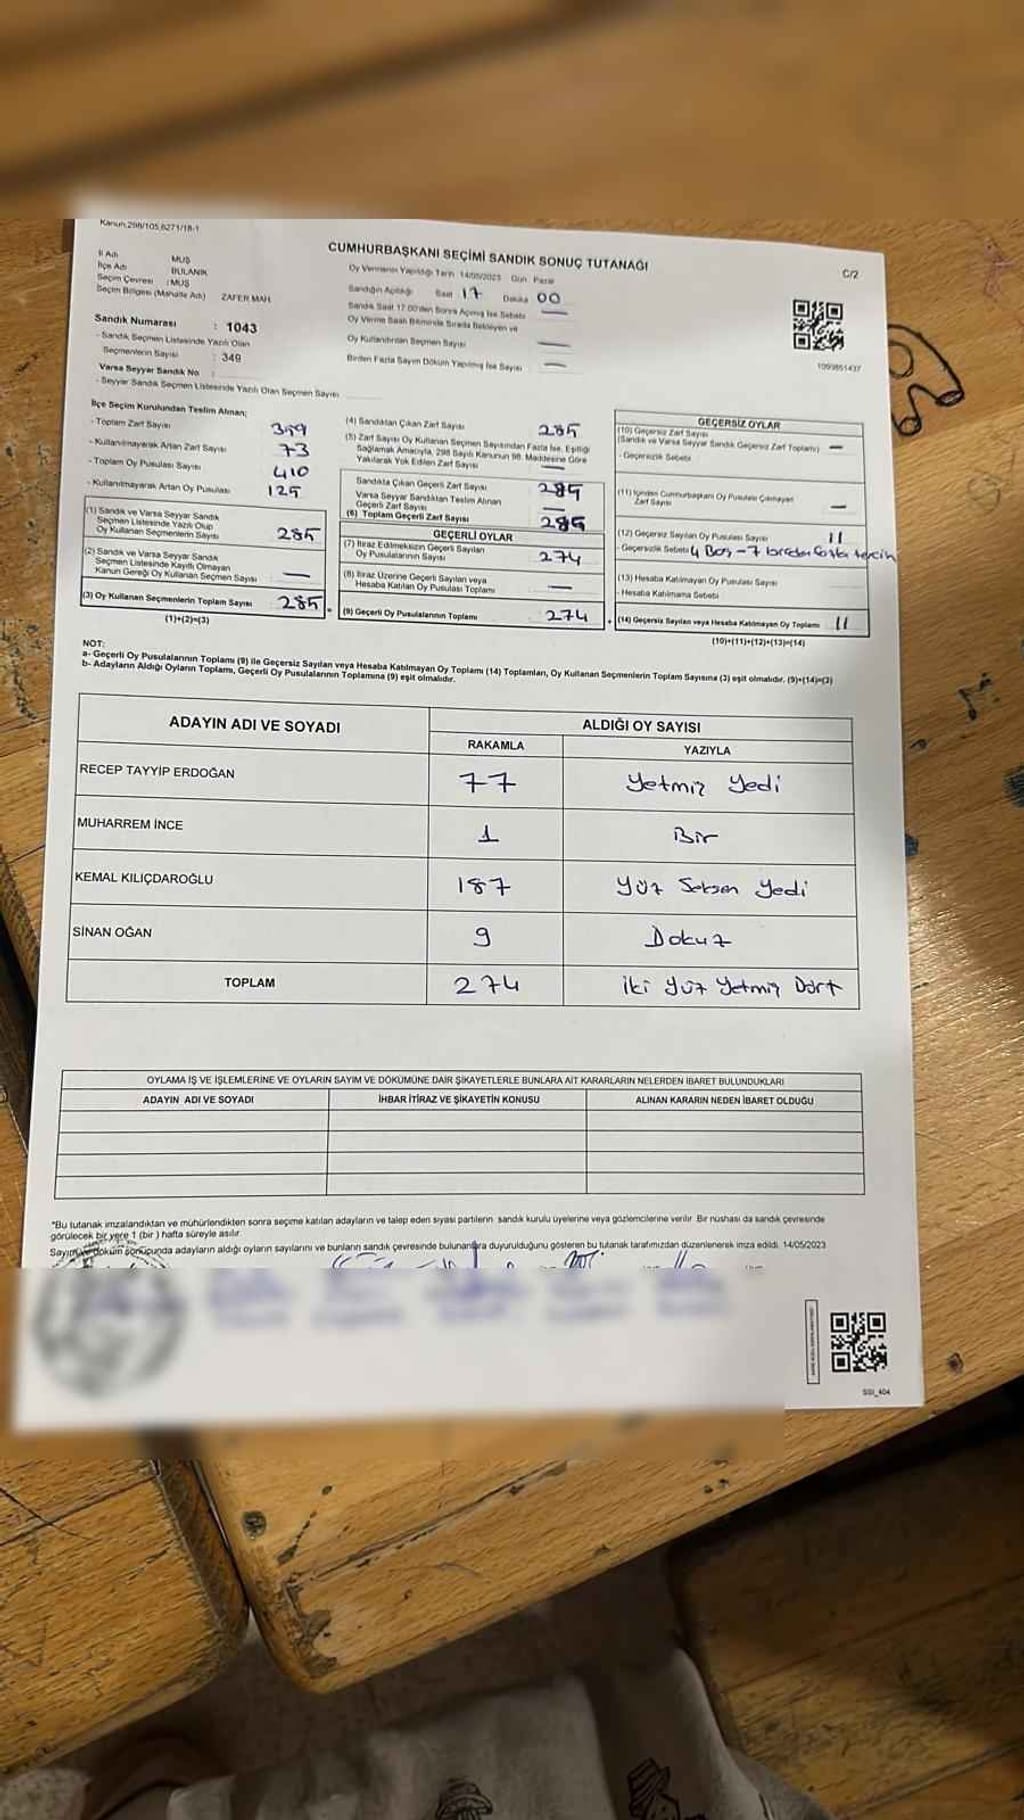 Kanun:298/105,6271/18-1
CUMHURBAŞKANI SEÇİMİ SANDIK SONUÇ TUTANAĞI
C/2
İl Adı MUŞ
İlçe Adı BULANIK
Seçim Çevresi : MUŞ
Seçim Bölgesi (Mahalle Adı) ZAFER MAH.
Sandık Numarası : 1043
- Sandık Seçmen Listesinde Yazılı Olan
Seçmenlerin Sayısı : 349
Varsa Seyyar Sandık No :
- Seyyar Sandık Seçmen Listesinde Yazılı Olan Seçmen Sayısı
Oy Vermenin Yapıldığı Tarih 14/05/2023 Gün Pazar
Sandığın Açıldığı Saat 17 Dakika 00
Sandık Saat 17.00'den Sonra Açılmış İse Sebebi —
Oy Verme Saati Bitiminde Sırada Bekleyen ve
Oy Kullandırılan Seçmen Sayısı —
Birden Fazla Sayım Döküm Yapılmış İse Sayısı —
1099851437
İlçe Seçim Kurulundan Teslim Alınan;
- Toplam Zarf Sayısı
- Kullanılmayarak Artan Zarf Sayısı 73
- Toplam Oy Pusulası Sayısı 410
- Kullanılmayarak Artan Oy Pusulası 125
(1) Sandık ve Varsa Seyyar Sandık
Seçmen Listesinde Yazılı Olup
Oy Kullanan Seçmenlerin Sayısı 285
(2) Sandık ve Varsa Seyyar Sandık
Seçmen Listesinde Kayıtlı Olmayan
Kanun Gereği Oy Kullanan Seçmen Sayısı —
(3) Oy Kullanan Seçmenlerin Toplam Sayısı 285
(1)+(2)=(3)
(4) Sandıktan Çıkan Zarf Sayısı 285
(5) Zarf Sayısı Oy Kullanan Seçmen Sayısından Fazla İse, Eşitliği
Sağlamak Amacıyla, 298 Sayılı Kanunun 98. Maddesine Göre
Yakılarak Yok Edilen Zarf Sayısı —
Sandıkta Çıkan Geçerli Zarf Sayısı 285
Varsa Seyyar Sandıktan Teslim Alınan
Geçerli Zarf Sayısı —
(6) Toplam Geçerli Zarf Sayısı 285
GEÇERLİ OYLAR
(7) İtiraz Edilmeksizin Geçerli Sayılan
Oy Pusulalarının Sayısı 274
(8) İtiraz Üzerine Geçerli Sayılan veya
Hesaba Katılan Oy Pusulası Toplamı —
(9) Geçerli Oy Pusulalarının Toplamı 274
GEÇERSİZ OYLAR
(10) Geçersiz Zarf Sayısı
(Sandık ve Varsa Seyyar Sandık Geçersiz Zarf Toplamı) —
- Geçersizlik Sebebi
(11) İçinden Cumhurbaşkanı Oy Pusulası Çıkmayan
Zarf Sayısı —
(12) Geçersiz Sayılan Oy Pusulası Sayısı 11
- Geçersizlik Sebebi 4 Boş - 7 birden fazla tercih
(13) Hesaba Katılmayan Oy Pusulası Sayısı
- Hesaba Katılmama Sebebi
(14) Geçersiz Sayılan veya Hesaba Katılmayan Oy Toplamı 11
(10)+(11)+(12)+(13)=(14)
NOT:
a- Geçerli Oy Pusulalarının Toplamı (9) ile Geçersiz Sayılan veya Hesaba Katılmayan Oy Toplamı (14) Toplamları, Oy Kullanan Seçmenlerin Toplam Sayısına (3) eşit olmalıdır. (9)+(14)=(3)
b- Adayların Aldığı Oyların Toplamı, Geçerli Oy Pusulalarının Toplamına (9) eşit olmalıdır.
ADAYIN ADI VE SOYADI ALDIĞI OY SAYISI
RAKAMLA YAZIYLA
RECEP TAYYİP ERDOĞAN 77 Yetmiş Yedi
MUHARREM İNCE 1 Bir
KEMAL KILIÇDAROĞLU 187 Yüz Seksen Yedi
SİNAN OĞAN 9 Dokuz
TOPLAM 274 İki Yüz Yetmiş Dört
OYLAMA İŞ VE İŞLEMLERİNE VE OYLARIN SAYIM VE DÖKÜMÜNE DAİR ŞİKAYETLERLE BUNLARA AİT KARARLARIN NELERDEN İBARET BULUNDUKLARI
ADAYIN ADI VE SOYADI İHBAR İTİRAZ VE ŞİKAYETİN KONUSU ALINAN KARARIN NEDEN İBARET OLDUĞU
*Bu tutanak imzalandıktan ve mühürlendikten sonra seçime katılan adayların ve talep eden siyasi partilerin sandık kurulu üyelerine veya gözlemcilerine verilir. Bir nüshası da sandık çevresinde
görülecek bir yere 1 (bir) hafta süreyle asılır.
Sayım ve döküm sonucunda adayların aldığı oyların sayılarını ve bunların sandık çevresinde bulunanlara duyurulduğunu gösteren bu tutanak tarafımızdan düzenlenerek imza edildi. 14/05/2023
SSI_404